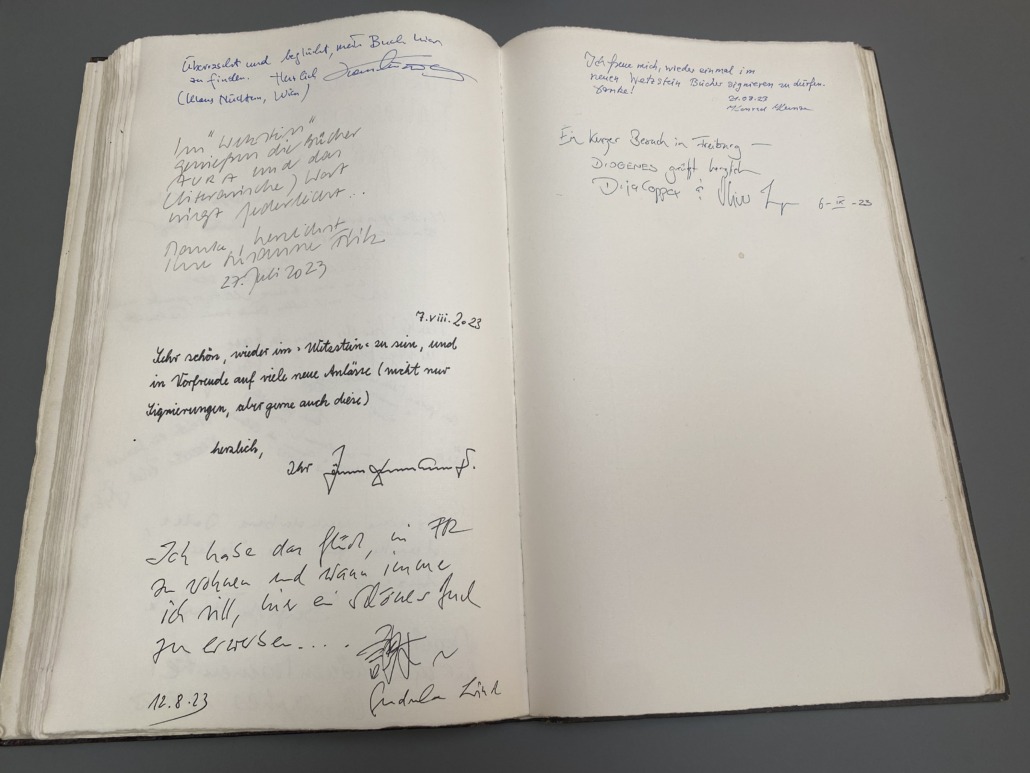 Überrascht und beglückt, mein Buch hier
zu finden. Herzlich
(Klaus Nüchtern, Wien)
Im "Wetzstein"
genießen die Bücher
AURA und das
(literarische) Wort
wiegt federleicht...
Danke, herzlichst
Ihre Susanne
27. Juli 2023
7.viii.2023
Sehr schön, wieder im »Wetzstein« zu sein, und
in Vorfreude auf viele neue Anlässe (nicht nur
Signierungen, aber gerne auch diese)
herzlich,
Ihr
Ich habe das Glück, in FR
zu wohnen und wann immer
ich will, hier ein schönes Buch
zu erwerben....
12.8.23
Gudula
Ich freue mich, wieder einmal im
neuen Wetzstein Bücher signieren zu dürfen.
Danke!
31.08.23
Ein kurzer Besuch in Freiburg —
DIOGENES grüßt herzlich
&
6-IX-23